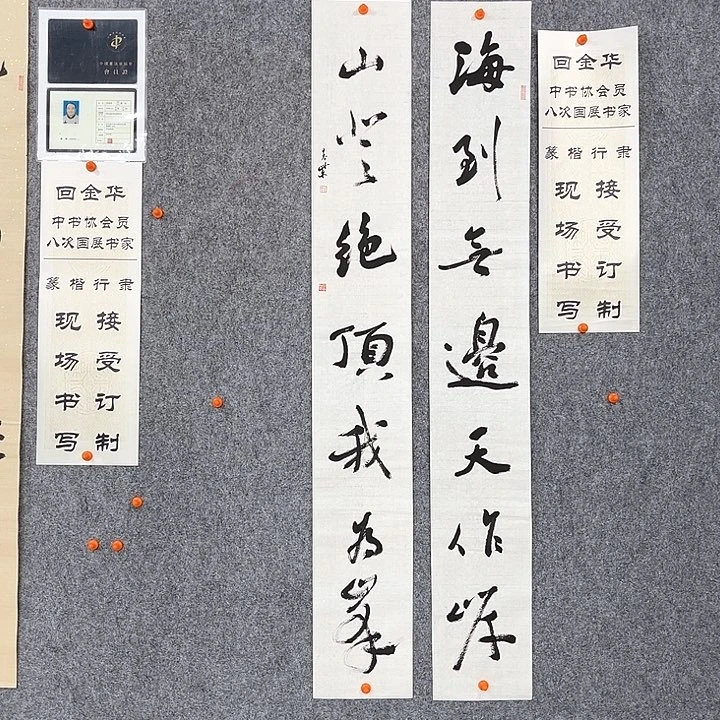 會員證
回金华
中书协会员
八次国展书家
篆楷行隶
现场书写
接受订制
海到無邊天作岸
山登絶頂我為峯
回金华
中书协会员
八次国展书家
篆楷行隶
现场书写
接受订制